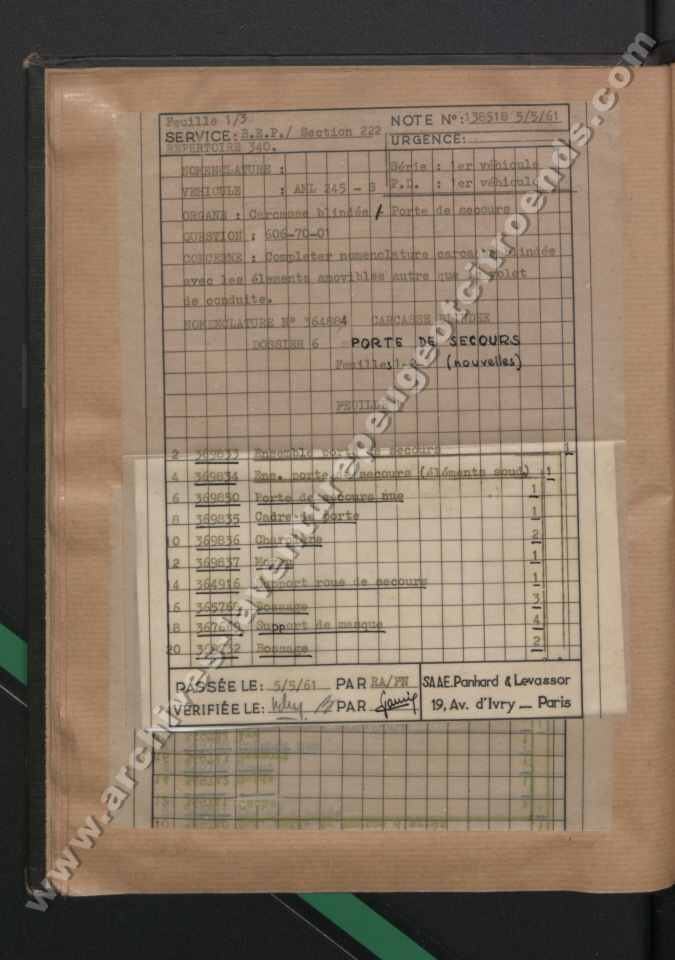 Feuille 1/3
SERVICE: B.E.P./ Section 222
REPERTOIRE 340.
NOTE N°: 138518 5/5/61
URGENCE:
NOMENCLATURE :
Série : 1er véhicule
VEHICULE : AML 245 - S
P.I. : 1er véhicule
ORGANE : Carcasse blindée / Porte de secours
QUESTION : 606-70-01
CONCERNE : Completer nomenclature carcasse blindée
avec les élements amovibles autre que le volet
de conduite.
NOMENCLATURE N° 364884 CARCASSE BLINDEE
DOSSIER 6 PORTE DE SECOURS
Feuilles 1-2- (nouvelles)
FEUILLE
2 369833 Ensemble porte de secours 1
4 369834 Ens. porte de secours (éléments soud.) 1
6 369850 Porte de secours nue 1
8 369835 Cadre de porte 1
10 369836 Charnière 2
12 369837 1
14 364916 Support roue de secours 1
16 Bossage 3
18 Support de masque 4
20 Bossage 2
PASSÉE LE: 5/5/61 PAR RA/PN
VÉRIFIÉE LE: PAR
SAAE. Panhard & Levassor
19, Av. d'Ivry _ Paris
www.archives-laventurepeugeotcitroends.com